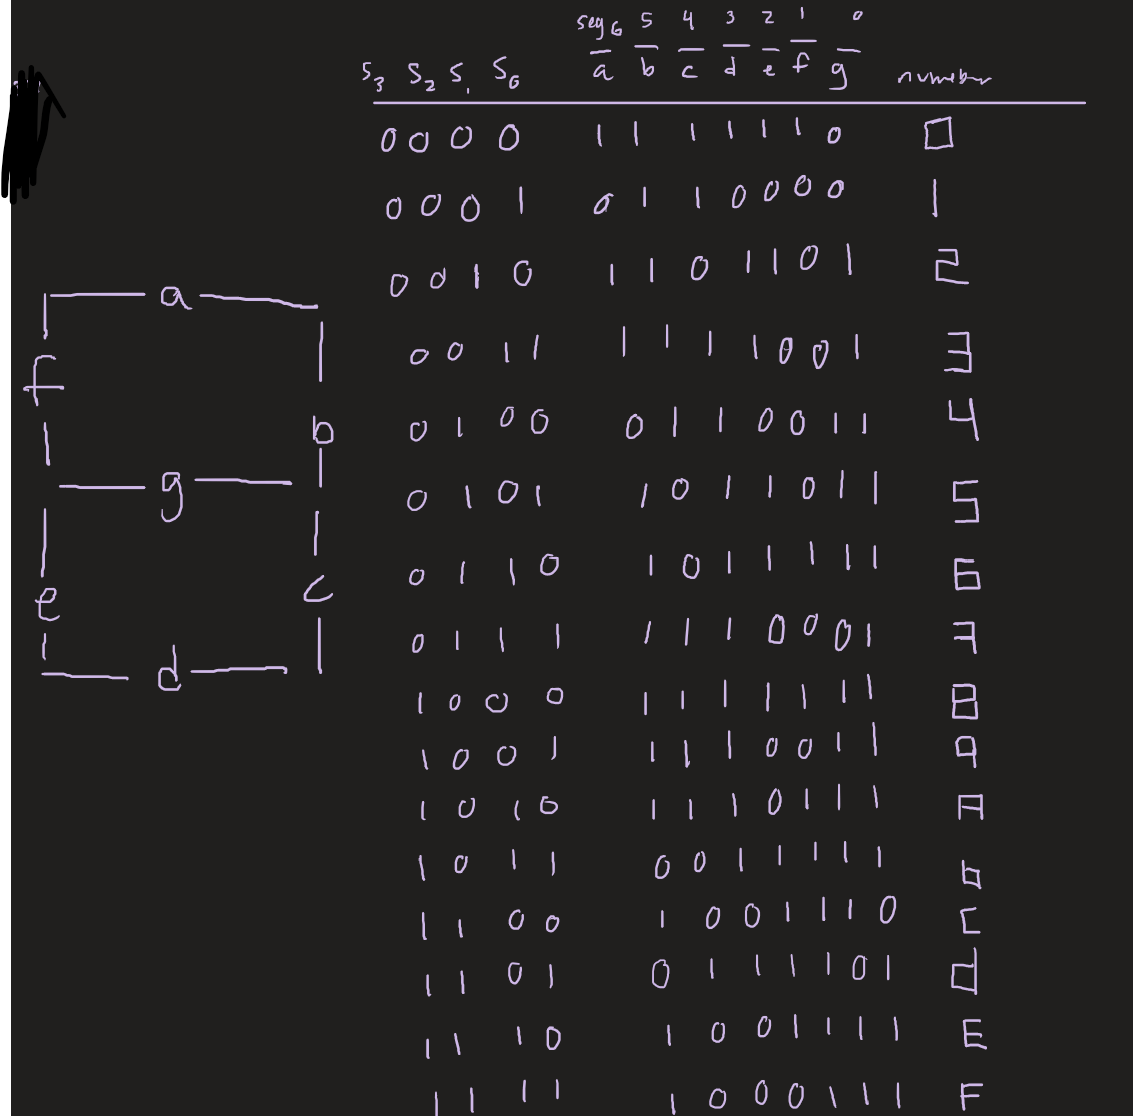 seg6 5 4 3 2 1 0
S3 S2 S1 S0 a b c d e f g number
0 0 0 0 1 1 1 1 1 1 0 0
0 0 0 1 0 1 1 0 0 0 0 1
0 0 1 0 1 1 0 1 1 0 1 2
0 0 1 1 1 1 1 1 0 0 1 3
0 1 0 0 0 1 1 0 0 1 1 4
0 1 0 1 1 0 1 1 0 1 1 5
0 1 1 0 1 0 1 1 1 1 1 6
0 1 1 1 1 1 1 0 0 0 1 7
1 0 0 0 1 1 1 1 1 1 1 8
1 0 0 1 1 1 1 0 0 1 1 9
1 0 1 0 1 1 1 0 1 1 1 A
1 0 1 1 0 0 1 1 1 1 1 b
1 1 0 0 1 0 0 1 1 1 0 C
1 1 0 1 0 1 1 1 1 0 1 d
1 1 1 0 1 0 0 1 1 1 1 E
1 1 1 1 1 0 0 0 1 1 1 F
a
f
b
g
e
c
d